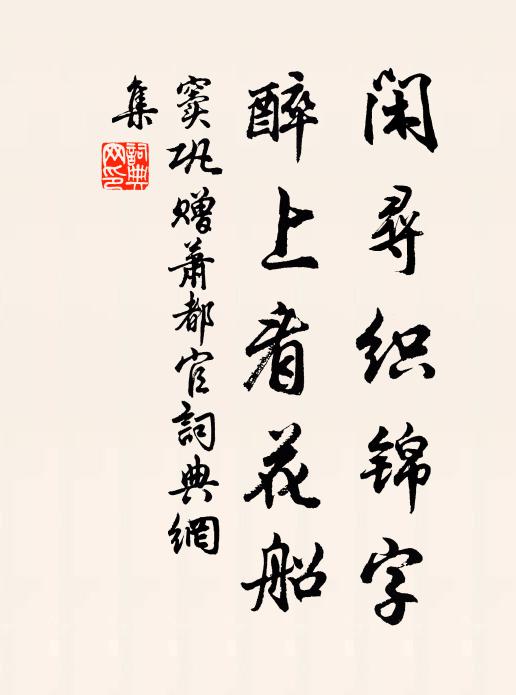 閑尋织锦字
醉上看花船
窦巩赠萧都官詞典網
集
詞典网印